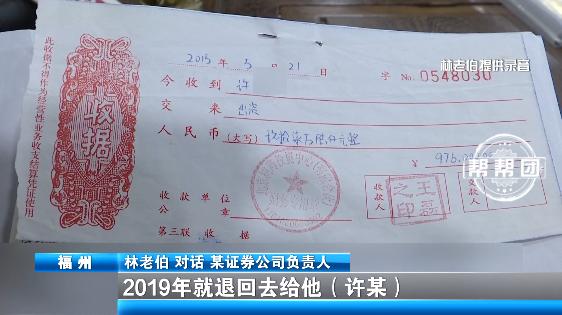 林老伯提供录音
2015年5月21日 字 No. 0548030
今收到 许
交来
人民币（大写）
¥ 976,000
收款单位
公章
收款人
王磊之印
交款人
第三联 收据
收据
此收据不得作为经营性业务收支结算凭证使用
帮帮团
福州 林老伯 对话 某证券公司负责人
2019年就退回去给他（许某）